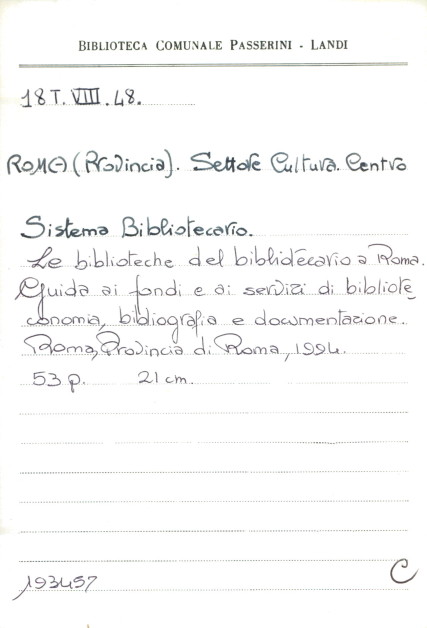 BIBLIOTECA COMUNALE PASSERINI - LANDI
18 T. VIII. 48.
ROMA (Provincia). Settore Cultura. Centro
Sistema Bibliotecario.
Le biblioteche del bibliotecario a Roma.
Guida ai fondi e ai servizi di bibliote_
conomia, bibliografia e documentazione.
Roma, Provincia di Roma, 1994.
53 p. 21 cm.
193457 C